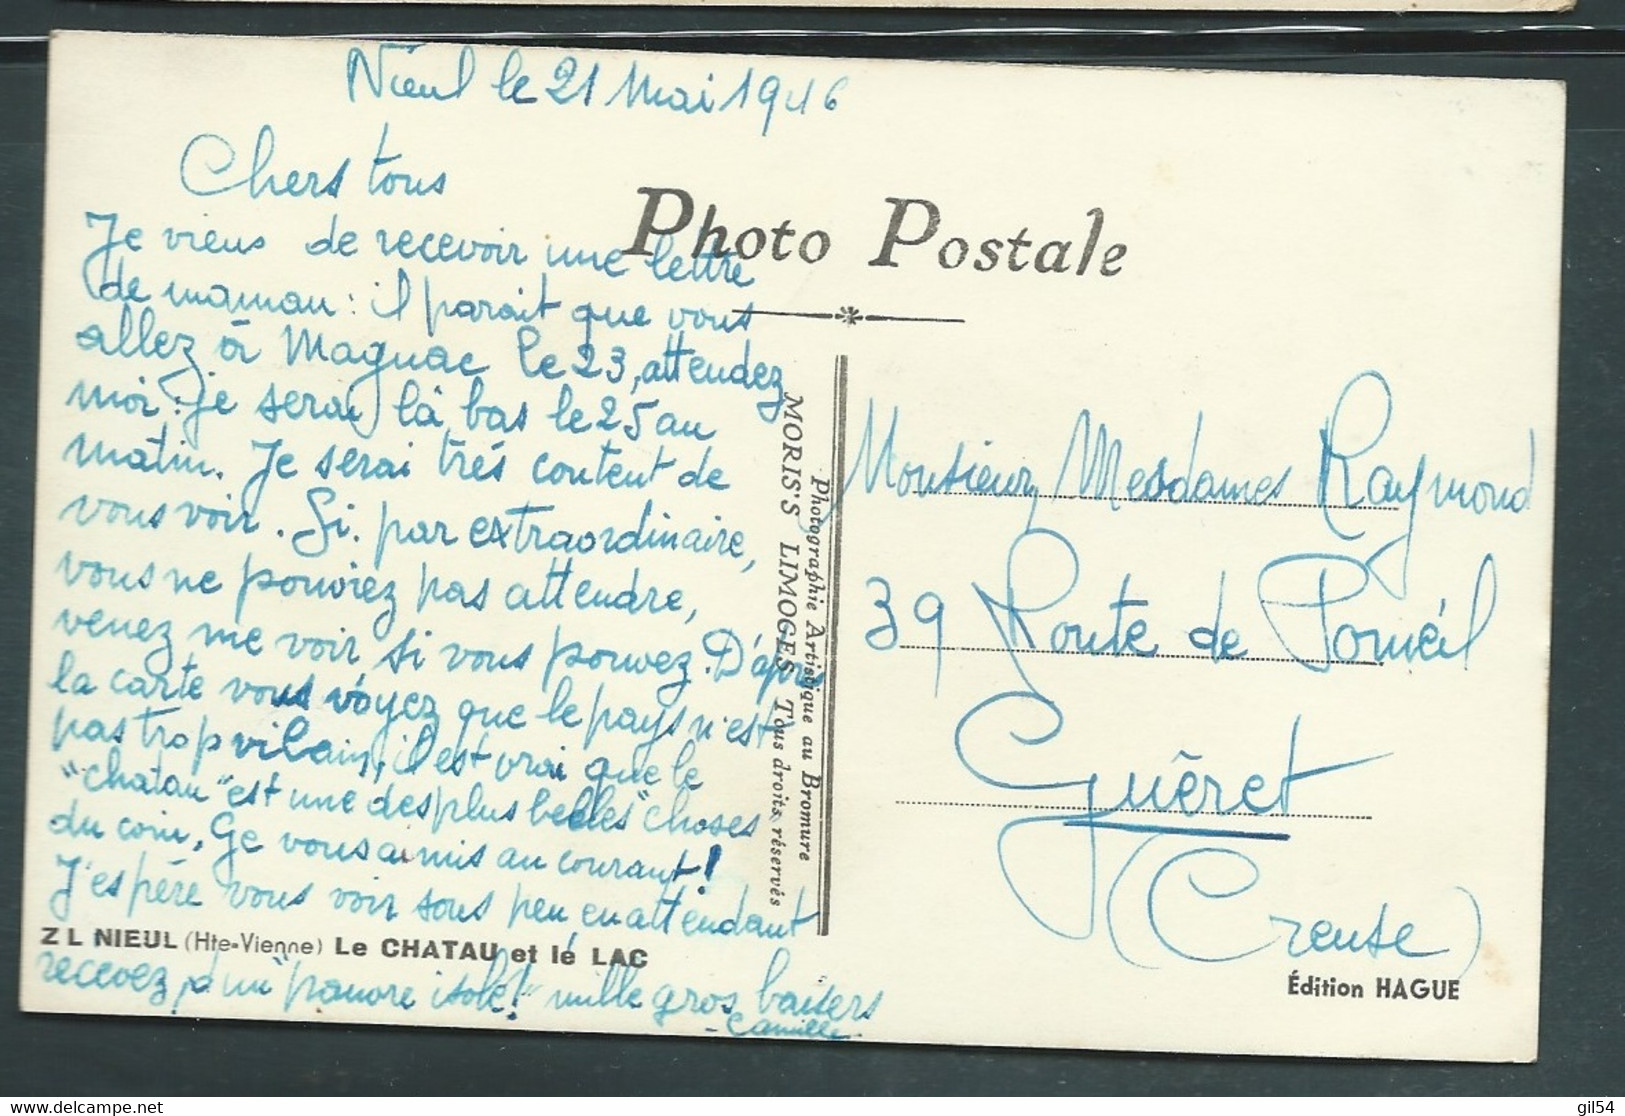 Nieul le 21 Mai 1946
Chers tous
Je viens de recevoir une lettre
de maman : il parait que vous
allez à Magnac le 23, attendez
moi : je serai là bas le 25 au
matin. Je serai très content de
vous voir. Si par extraordinaire,
vous ne pouviez pas attendre,
venez me voir si vous pouvez. D'après
la carte vous voyez que le pays n'est
pas trop vilain, il est vrai que le
"chatau" est une des plus belles "choses"
du coin, Ge vous ai mis au courant !
J'espère vous voir sous peu, en attendant
recevez, d'un "pauvre isolé !" mille gros baisers
- Camille
Z L NIEUL (Hte-Vienne) Le CHATAU et lé LAC
Photo Postale
Photographie Artistique au Bromure
MORIS'S LIMOGES Tous droits réservés
Monsieur Mesdames Raymond
39 Route de Pomeil
Guéret
(Creuse)
Édition HAGUE
gil54